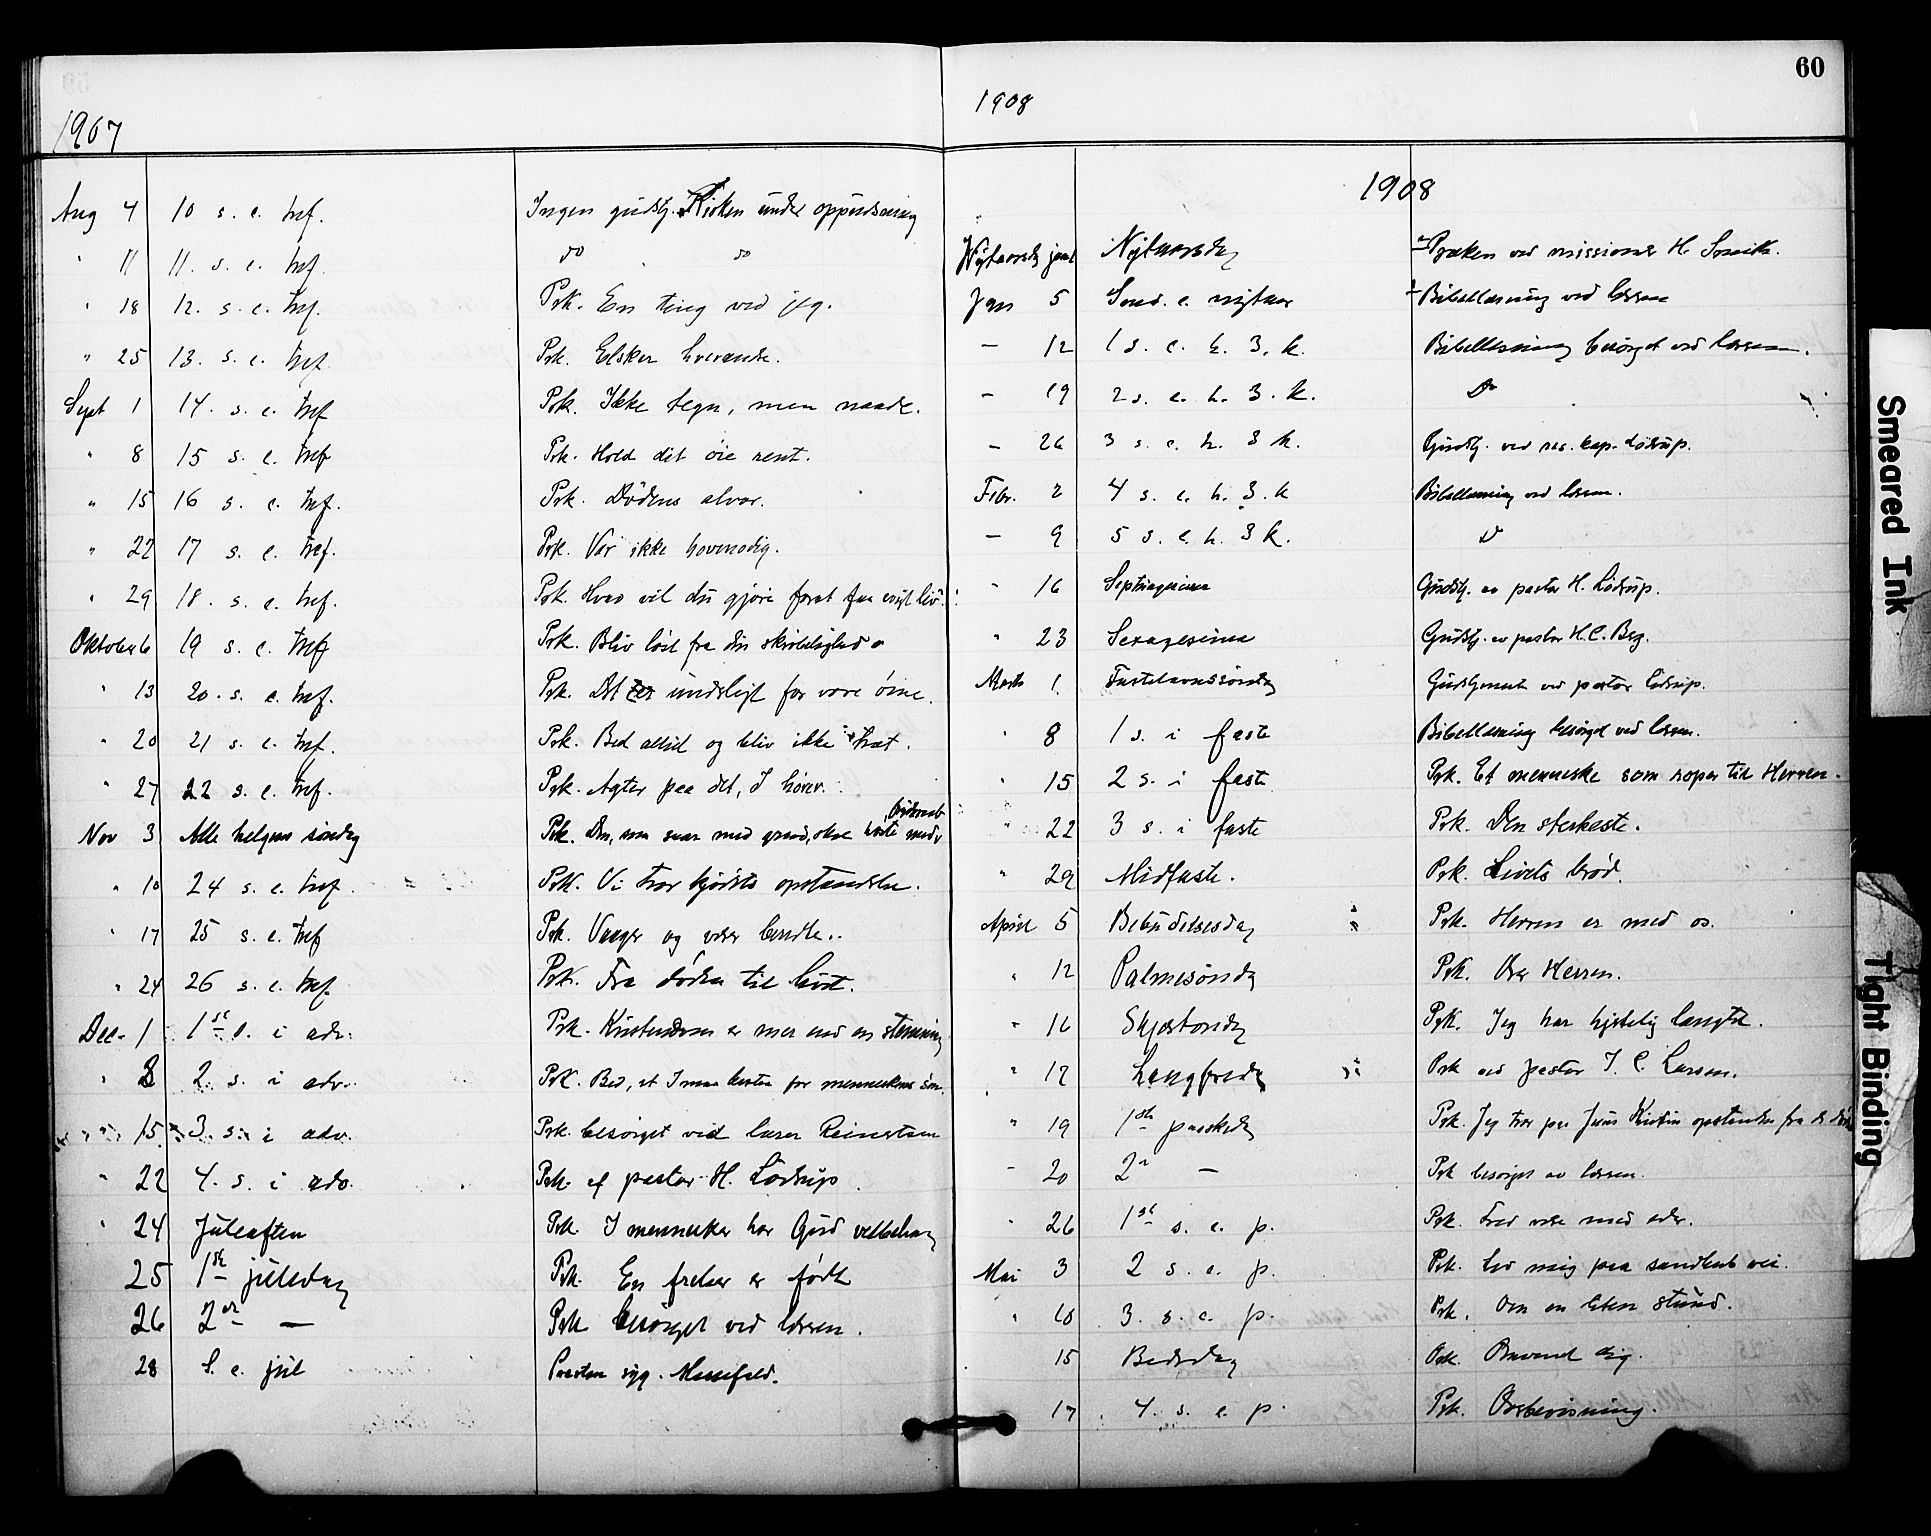 60
1907
Aug 4 10 s. e. tref. Ingen gudstj. Kirken under oppudsning
" 11 11. s. e. tref. do do
" 18 12. s. e. tref. Prk. En ting ved jeg.
" 25 13. s. e. tref. Prk. Elsker hverandre.
Sept 1 14. s. e. tref Prk. Ikke tegn, men naade.
" 8 15 s. e. tref Prk. Hold dit øie rent.
" 15 16 s. e. tref. Prk. Dødens alvor.
" 22 17 s. e. tref. Prk. Vær ikke hovmodig.
" 29 18. s. e. tref. Prk. Hvad vil du gjøre forat faa evigt liv.
Oktober 6 19 s. e. tref Prk. Bliv løst fra din skrøbelighed
" 13 20. s. e. tref. Prk. Det er underligt for vore øine.
" 20 21 s. e. tref. Prk. Bed altid og bliv ikke træt.
" 27 22 s. e. tref. Prk. Agter paa det, I hører.
Nov 3 Alle helgens søndag Prk. Den, som saar med graad, skal høste med
" 10 24 s. e. tref. Prk. Vi tror kjødets opstandelse.
" 17 25 s. e. tref Prk. Vaager og værer beredte.
" 24 26 s. e. tref. Prk. Fra døden til livet.
Dec. 1 1ste s. i adv. Prk. Kristendom er mer end en stemning
" 8 2. s. i adv. Prk. Bed, at I maa bestaa for menneskens søn.
" 15 3. s. i adv. Prk. besørget ved lærer Reinertsen
" 22 4. s. i adv. Prk. af pastor H. Lødrup.
" 24 Juleaften Prk. I mennesker har Gud velbehag
25 1ste juledag Prk. En frelser er født
26 2en — Prk besørget ved læreren.
28 S. e. jul Presten syg. Messefald.
1908
1908
Nytaarsdag Nytaarsdag Præken ved missionær H.
Jan 5 Sønd. e. nytaar Bibellæsning ved læreren
— 12 1 s. e. h. 3. k. Bibellæsning besørget ved læreren.
— 19 2 s. e. h. 3. k. Do
— 26 3 s. e. h. 3 k. Gudstj. ved res. kap. Lødrup.
Febr. 2 4 s. e. h. 3. k Bibellæsning ved læreren.
— 9 5 s. e. h. 3 k. Do
" 16 Septuagesima Gudstj. av pastor H. Lødrup.
" 23 Sexagesima Gudstj. av pastor H. C. Berg.
Marts 1. Fastelavnssøndag Gudstjeneste ved pastor Lødrup.
" 8 1 s. i faste Bibellæsning besørget ved læreren.
" 15 2 s. i faste Prk. Et menneske som roper til Herren.
" 22 3 s. i faste Prk. Den sterkeste.
" 29 Midfaste. Prk. Livets brød.
April 5 Bebudelsesdag Prk. Herren er med os.
" 12 Palmesøndag Prk. Vor Herren.
" 16 Skjærtorsdag Prk. Jeg har hjertelig længtet.
" 17 Langfredag Prk ved pastor J. C. Larsen.
" 19 1ste paaskedag Prk. Jeg tror paa Jesu Kristi opstandelse fra de døde
" 20 2n — Prk besørget av læreren.
" 26 1ste s. e. p. Prk. Fred være med eder.
Mai 3 2 s. e. p. Prk. Led mig paa sandheds vei.
" 10 3. s. e. p. Prk. Om en liten stund.
15 Bededag Prk. Omvend dig.
17 4. s. e. p. Prk. Overbevisning.
Smeared Ink
Tight Binding